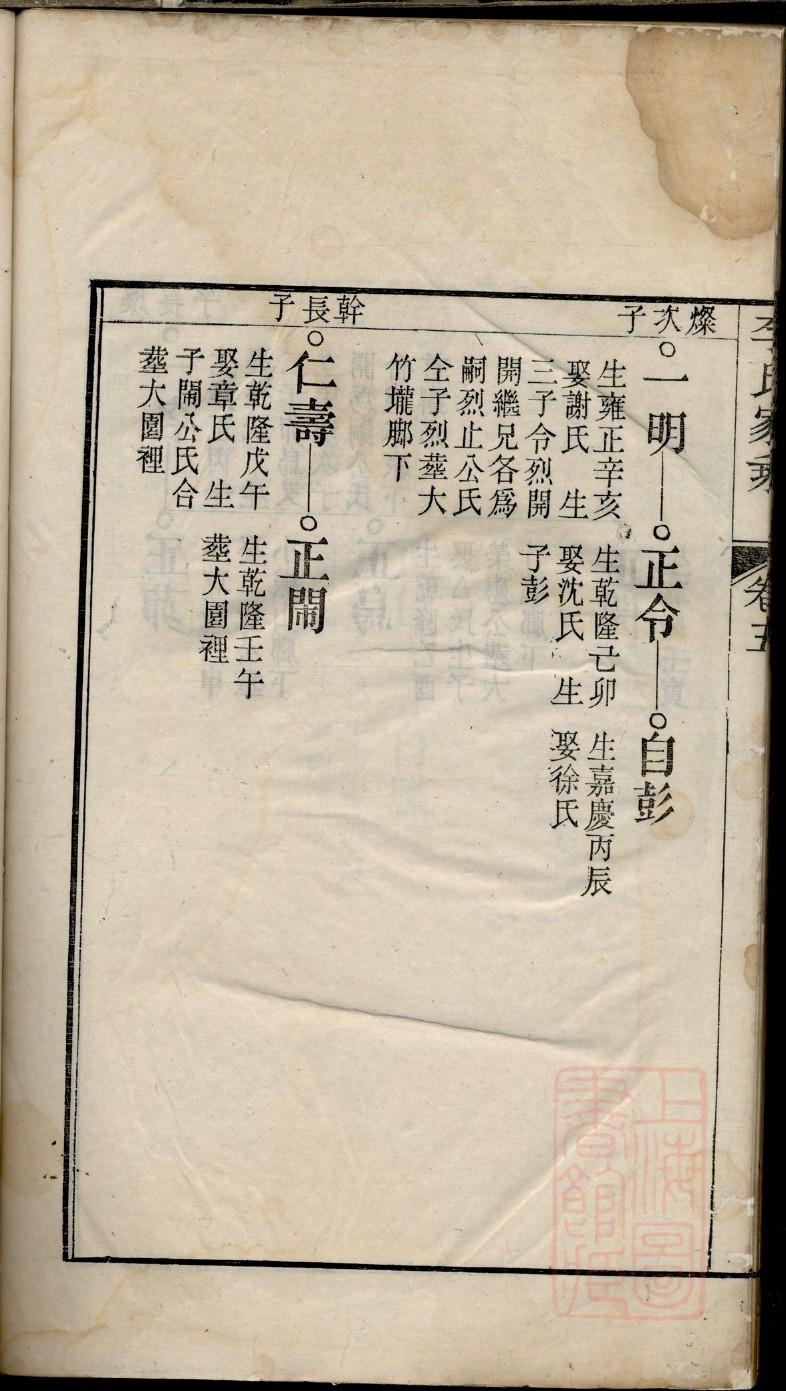 李氏家乘
卷五
燦次子
一明
生雍正辛亥
娶謝氏 生
三子令烈開
開繼兄各爲
嗣烈止公氏
仝子烈塟大
竹壠廊下
正令
生乾隆己卯
娶沈氏 生
子彭
自彭
生嘉慶丙辰
娶徐氏
幹長子
仁壽
生乾隆戊午
娶章氏 生
子鬧公氏合
塟大園裡
正鬧
生乾隆壬午
塟大園裡
上海圖
書館藏